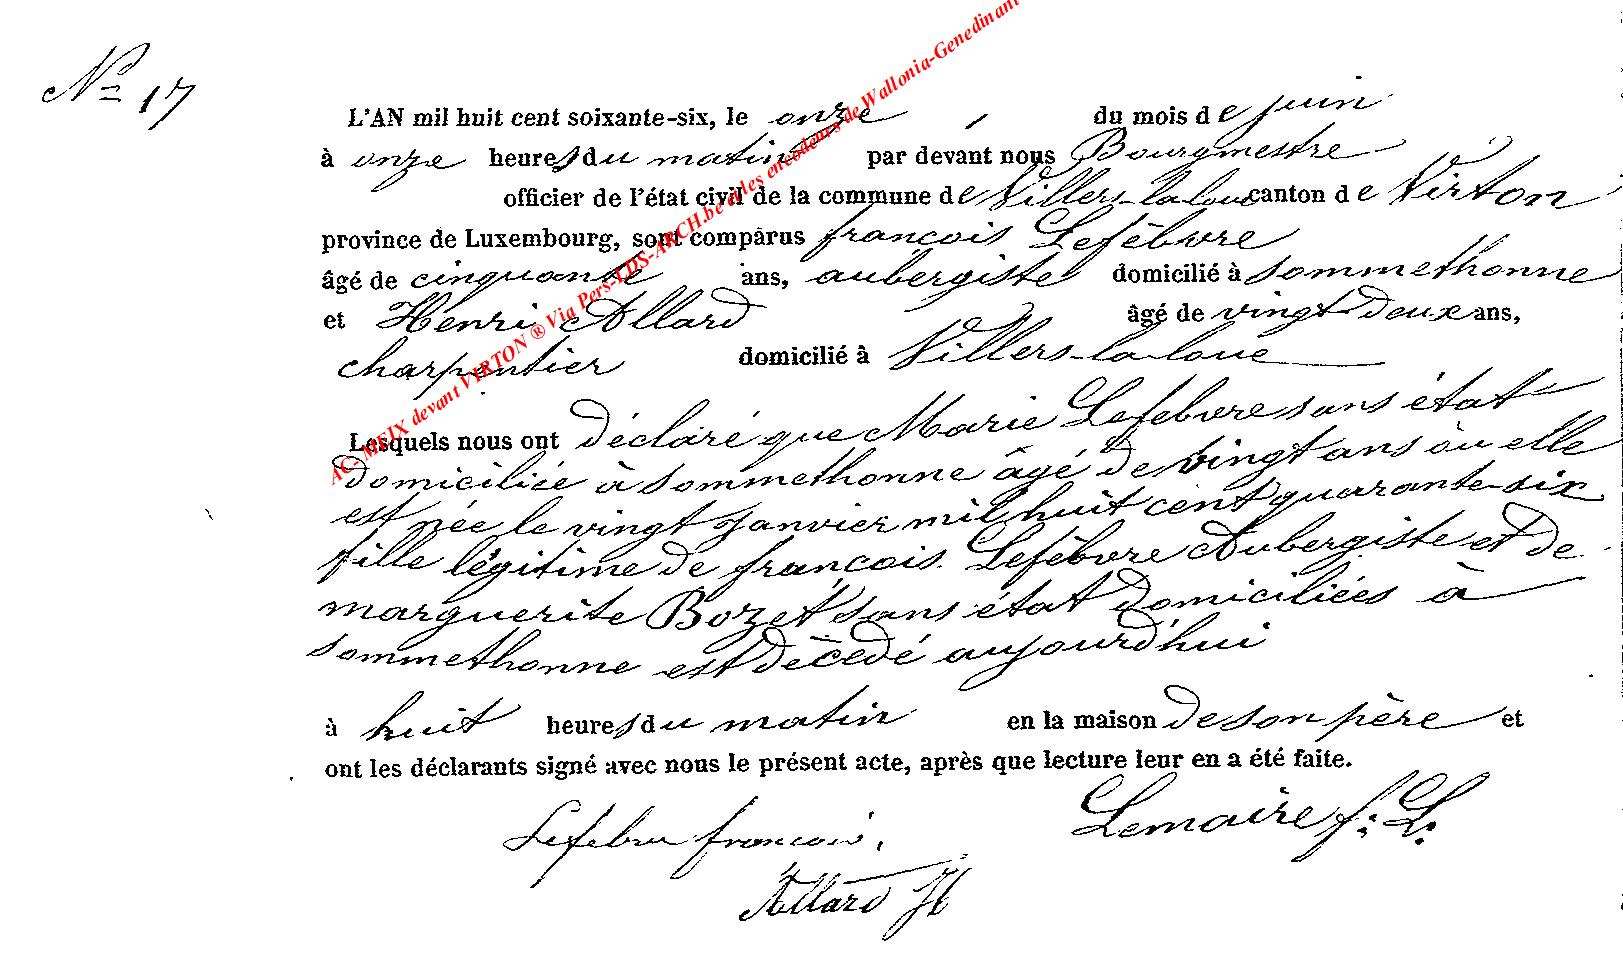 No 17
L'AN mil huit cent soixante-six, le onze du mois de juin
à onze heures du matin par devant nous Bourgmestre
officier de l'état civil de la commune de Villers-la-loue canton de Virton
province de Luxembourg, sont comparus françois Lefèbvre
âgé de cinquante ans, aubergiste domicilié à sommethonne
et Henri Allard âgé de vingt-deux ans,
charpentier domicilié à Villers-la-loue
Lesquels nous ont déclaré que Marie Lefebvre sans état
domiciliée à sommethonne âgé de vingt ans où elle
est née le vingt Janvier mil huit cent quarante-six
fille légitime de françois Lefèbvre Aubergiste et de
marguerite Bozet sans état domiciliées à
sommethonne est décédé aujourd'hui
à huit heures du matin en la maison de son père et
ont les déclarants signé avec nous le présent acte, après que lecture leur en a été faite.
Lefebvre francois. Lemaire f: L:
Allard H
AC. MEIX devant VIRTON ® Via Pers-LDS-ARCH.be et les encodeurs de Wallonia-Genedinant